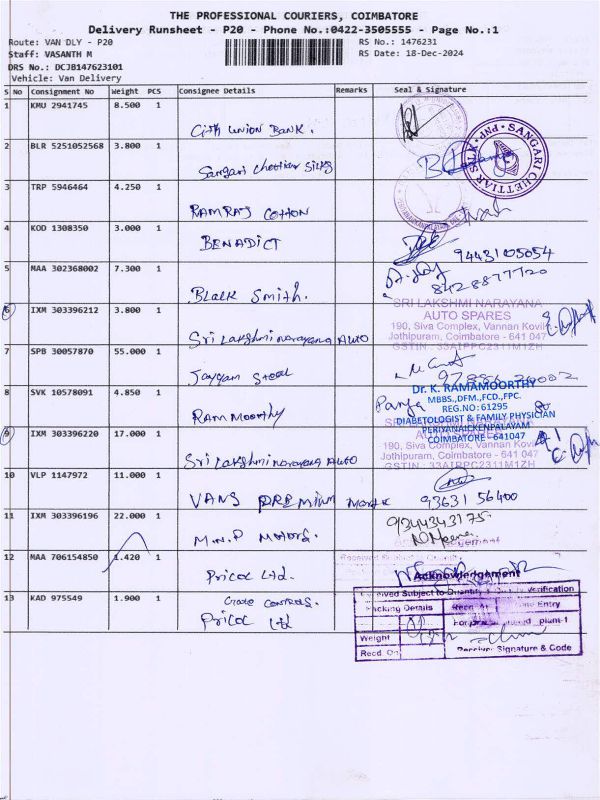 THE PROFESSIONAL COURIERS, COIMBATORE
Delivery Runsheet - P20 - Phone No.:0422-3505555 - Page No.:1
Route: VAN DLY - P20 RS No.: 1476231
Staff: VASANTH M RS Date: 18-Dec-2024
DRS No.: DCJB147623101
Vehicle: Van Delivery
S No Consignment No Weight PCS Consignee Details Remarks Seal & Signature
1 KMU 2941745 8.500 1
City Union Bank.
2 BLR 5251052568 3.800 1
Sangari Chettiar Silks
SANGARI CHETTIAR
3 TRP 5946464 4.250 1
RAMRAJ COTTON
4 KOD 1308350 3.000 1
BENADICT
94431 05054
5 MAA 302368002 7.300 1
8428877720
Black Smith.
SRI LAKSHMI NARAYANA
AUTO SPARES
6 IXM 303396212 3.800 1
190, Siva Complex, Vannan Kovil
Jothipuram, Coimbatore - 641 047
GSTIN : 33AIPPC2311M1ZH
Sri Lakshmi Narayana Auto
7 SPB 30057870 55.000 1
Jayyam Steel
Dr. K. RAMAMOORTHY
MBBS.,DFM.,FCD.,FPC.
REG.NO:61295
DIABETOLOGIST & FAMILY PHYSICIAN
PERIYANAICKENPALAYAM
COIMBATORE - 641047
8 SVK 10578091 4.850 1
Ram Moorthy
9 IXM 303396220 17.000 1
190, Siva Complex, Vannan Kovil
Jothipuram, Coimbatore - 641 047
GSTIN : 33AIPPC2311M1ZH
Sri Lakshmi Narayana Auto
10 VLP 1147972 11.000 1
VANS PREMIUM 93631 56400
11 IXM 303396196 22.000 1
9344343175
M.N.P MOTORS.
12 MAA 706154850 1.420 1
Pricol Ltd.
Acknowledgement
Received Subject to Quantity & Quality Verification
13 KAD 975549 1.900 1
Packing Details
Pricol Ltd
Weight
Recd. On
Receiver Signature & Code